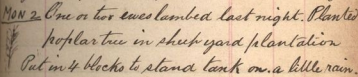 MON 2 One or two ewes lambed last night. Planted
poplar tree in sheep yard plantation
Put in 4 blocks to stand tank on. a little rain